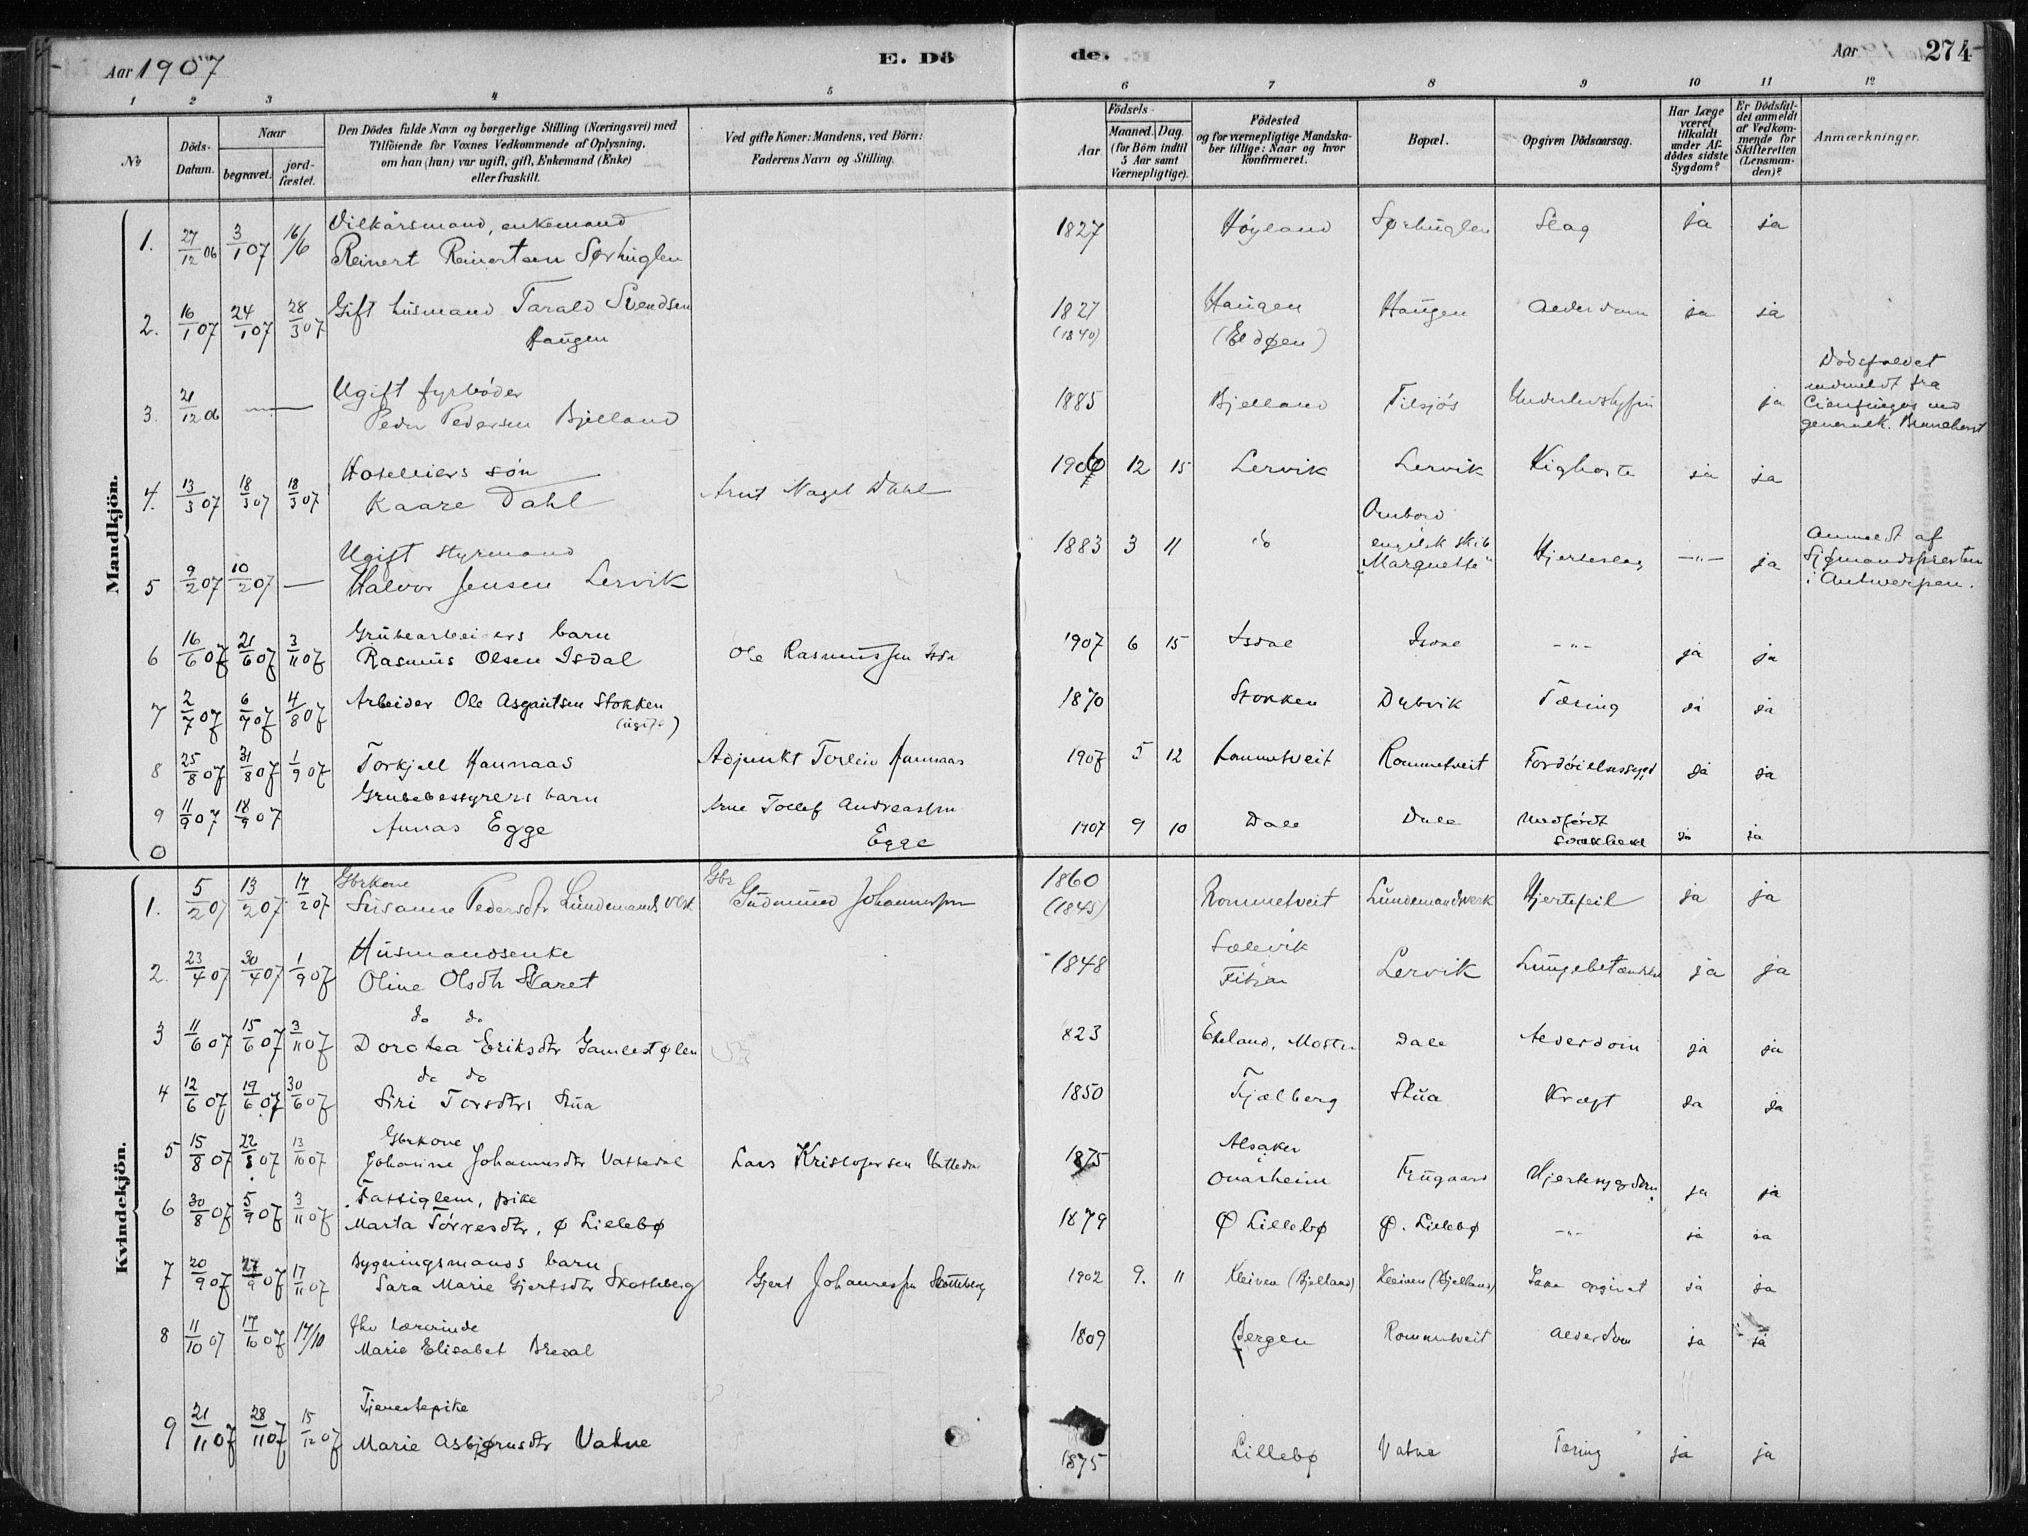 Aar 1907
E. Dö
de.
Aar
274
1 2 3 4 5 6 7 8 9 10 11 12
No
Döds-Datum.
Naar
begravet.
jord-fæstet.
Den Dödes fulde Navn og borgerlige Stilling (Næringsvei) med
Tilföiende for Voxnes Vedkommende af Oplysning,
om han (hun) var ugift, gift, Enkemand (Enke)
eller fraskilt.
Ved gifte Koner: Mandens, ved Börn:
Faderens Navn og Stilling.
Födsels-
Aar
Maaned. Dag.
(for Börn indtil
5 Aar samt
Værnepligtige).
Födested
og for værnepligtige Mandska-
ber tillige: Naar og hvor
konfirmeret.
Bopæl.
Opgiven Dödsaarsag.
Har Læge
været
tilkaldt
under Af-
dödes sidste
Sygdom?
Er Dödsfal-
det anmeldt
af Vedkom-
mende for
Skifteretten
(Lensman-
den)?
Anmærkninger.
Mandkjön.
1. 27/12 06 3/1 07 16/6 Vilkårsmand, enkemand
Reinert Reinertsen Sørhuglen 1827 Høyland Sørhuglen Slag ja ja
2. 16/1 07 24/1 07 28/3 07 Gift husmand Tarald Svendsen
Haugen 1827 (1840) Haugen (Eldøen) Haugen Alderdom ja ja
3. 21/12 06 — Ugift fyrbøder
Peder Pedersen Bjelland 1885 Bjelland Tilsjøs ja Dødsfaldet
indmeldt fra
Cienfuegos ved
4. 13/3 07 18/3 07 18/3 07 Hotelleiers søn
Kaare Dahl Arnt Nagel Dahl 1906 12 15 Lervik Lervik Kighoste ja ja
5 9/2 07 10/2 07 — Ugift styrmand
Halvor Jensen Lervik 1883 3 11 Ombord
engelsk skib
"Marquette" Hjerteslag —"— ja Anmeldt af
Sjømandspresten
i Antwerpen.
6 16/6 07 21/6 07 3/11 07 Grubearbeiders barn
Rasmus Olsen Isdal Ole Rasmussen 1907 6 15 Isdal Isdal -"- ja ja
7 2/7 07 6/7 07 4/8 07 Arbeider Ole Asgautsen Stokken
(ugift) 1870 Stokken Dybvik Tæring ja ja
8 25/8 07 31/8 07 1/9 07 Torkjell Hannaas Adjunkt Torleiv Hannaas 1907 5 12 Rommetveit Rommetveit ja ja
9 11/9 07 18/9 07 Grubebestyrers barn
Egge Arne Tollef Andreassen
Egge 1907 9 10 Dale Dale Medfødt ja ja
0
Kvindekjön.
1. 5/2 07 13/2 07 17/2 07 Gbrkone
Susanne Pedersdtr Lundemandsverk Gbr Gudmund Johannessen 1860 (1845) Rommetveit Lundemandsverk Hjertefeil ja ja
2. 23/4 07 30/4 07 1/9 07 Husmandsenke
Oline Olsdtr Skaret 1848 Sælevik
Fitjar Lervik Lungebetændelse ja ja
3 11/6 07 15/6 07 3/11 07 do do
Dorotea Eriksdtr Gamlestølen 823 Ekeland, Moster Dale Alderdom ja ja
4 12/6 07 19/6 07 30/6 07 do do
Siri Torsdtr Stua 1850 Fjælberg Stua Kræft ja ja
5 15/8 07 22/8 07 13/10 07 Gbrkone
Johanne Johannesdtr Vattedal Lars Kristofersen Vattedal 1875 Alsaker
Onarheim Frugaard Hjertesygdom ja ja
6 30/8 07 5/9 07 3/11 07 Fattiglem, pike
Marta Tørresdtr, Ø Lillebø 1879 Ø Lillebø Ø. Lillebø -"- ja ja
7 20/9 07 27/9 07 17/11 07 Bygningsmands barn
Sara Marie Gjertsdtr Skotteberg Gjert Johannessen Skotteberg 1902 9. 11 Kleiven (Bjelland) Kleiven (Bjelland) Ikke opgivet ja ja
8 11/10 07 17/10 07 17/10 fhv lærerinde
Marie Elisabet Bredal 1809 Bergen Rommetveit Alderdom ja ja
9 21/11 07 28/11 07 15/12 07 Tjenestepike
Marie Asbjørnsdtr Vatne 1875 Lillebø Vatne Tæring ja ja